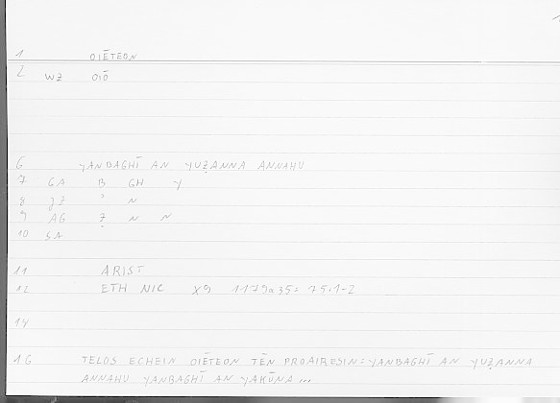 1 OIĒTEON
2 WẒ OIŌ
6 YANBAGHĪ AN YUẒANNA ANNAHU
7 GA B GH Y
8 ʾ N
9 AG Ẓ N N
10
11 ARIST
12 ETH NIC X9 1179a35: 75.1-2
14
16 TELOS ECHEIN OIĒTEON TĒN PROAIRESIN: YANBAGHĪ AN YUẒANNA
ANNAHU YANBAGHĪ AN YAKŪNA ...